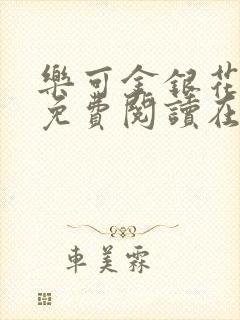 樂可金銀花
免費閱讀在
車美霖